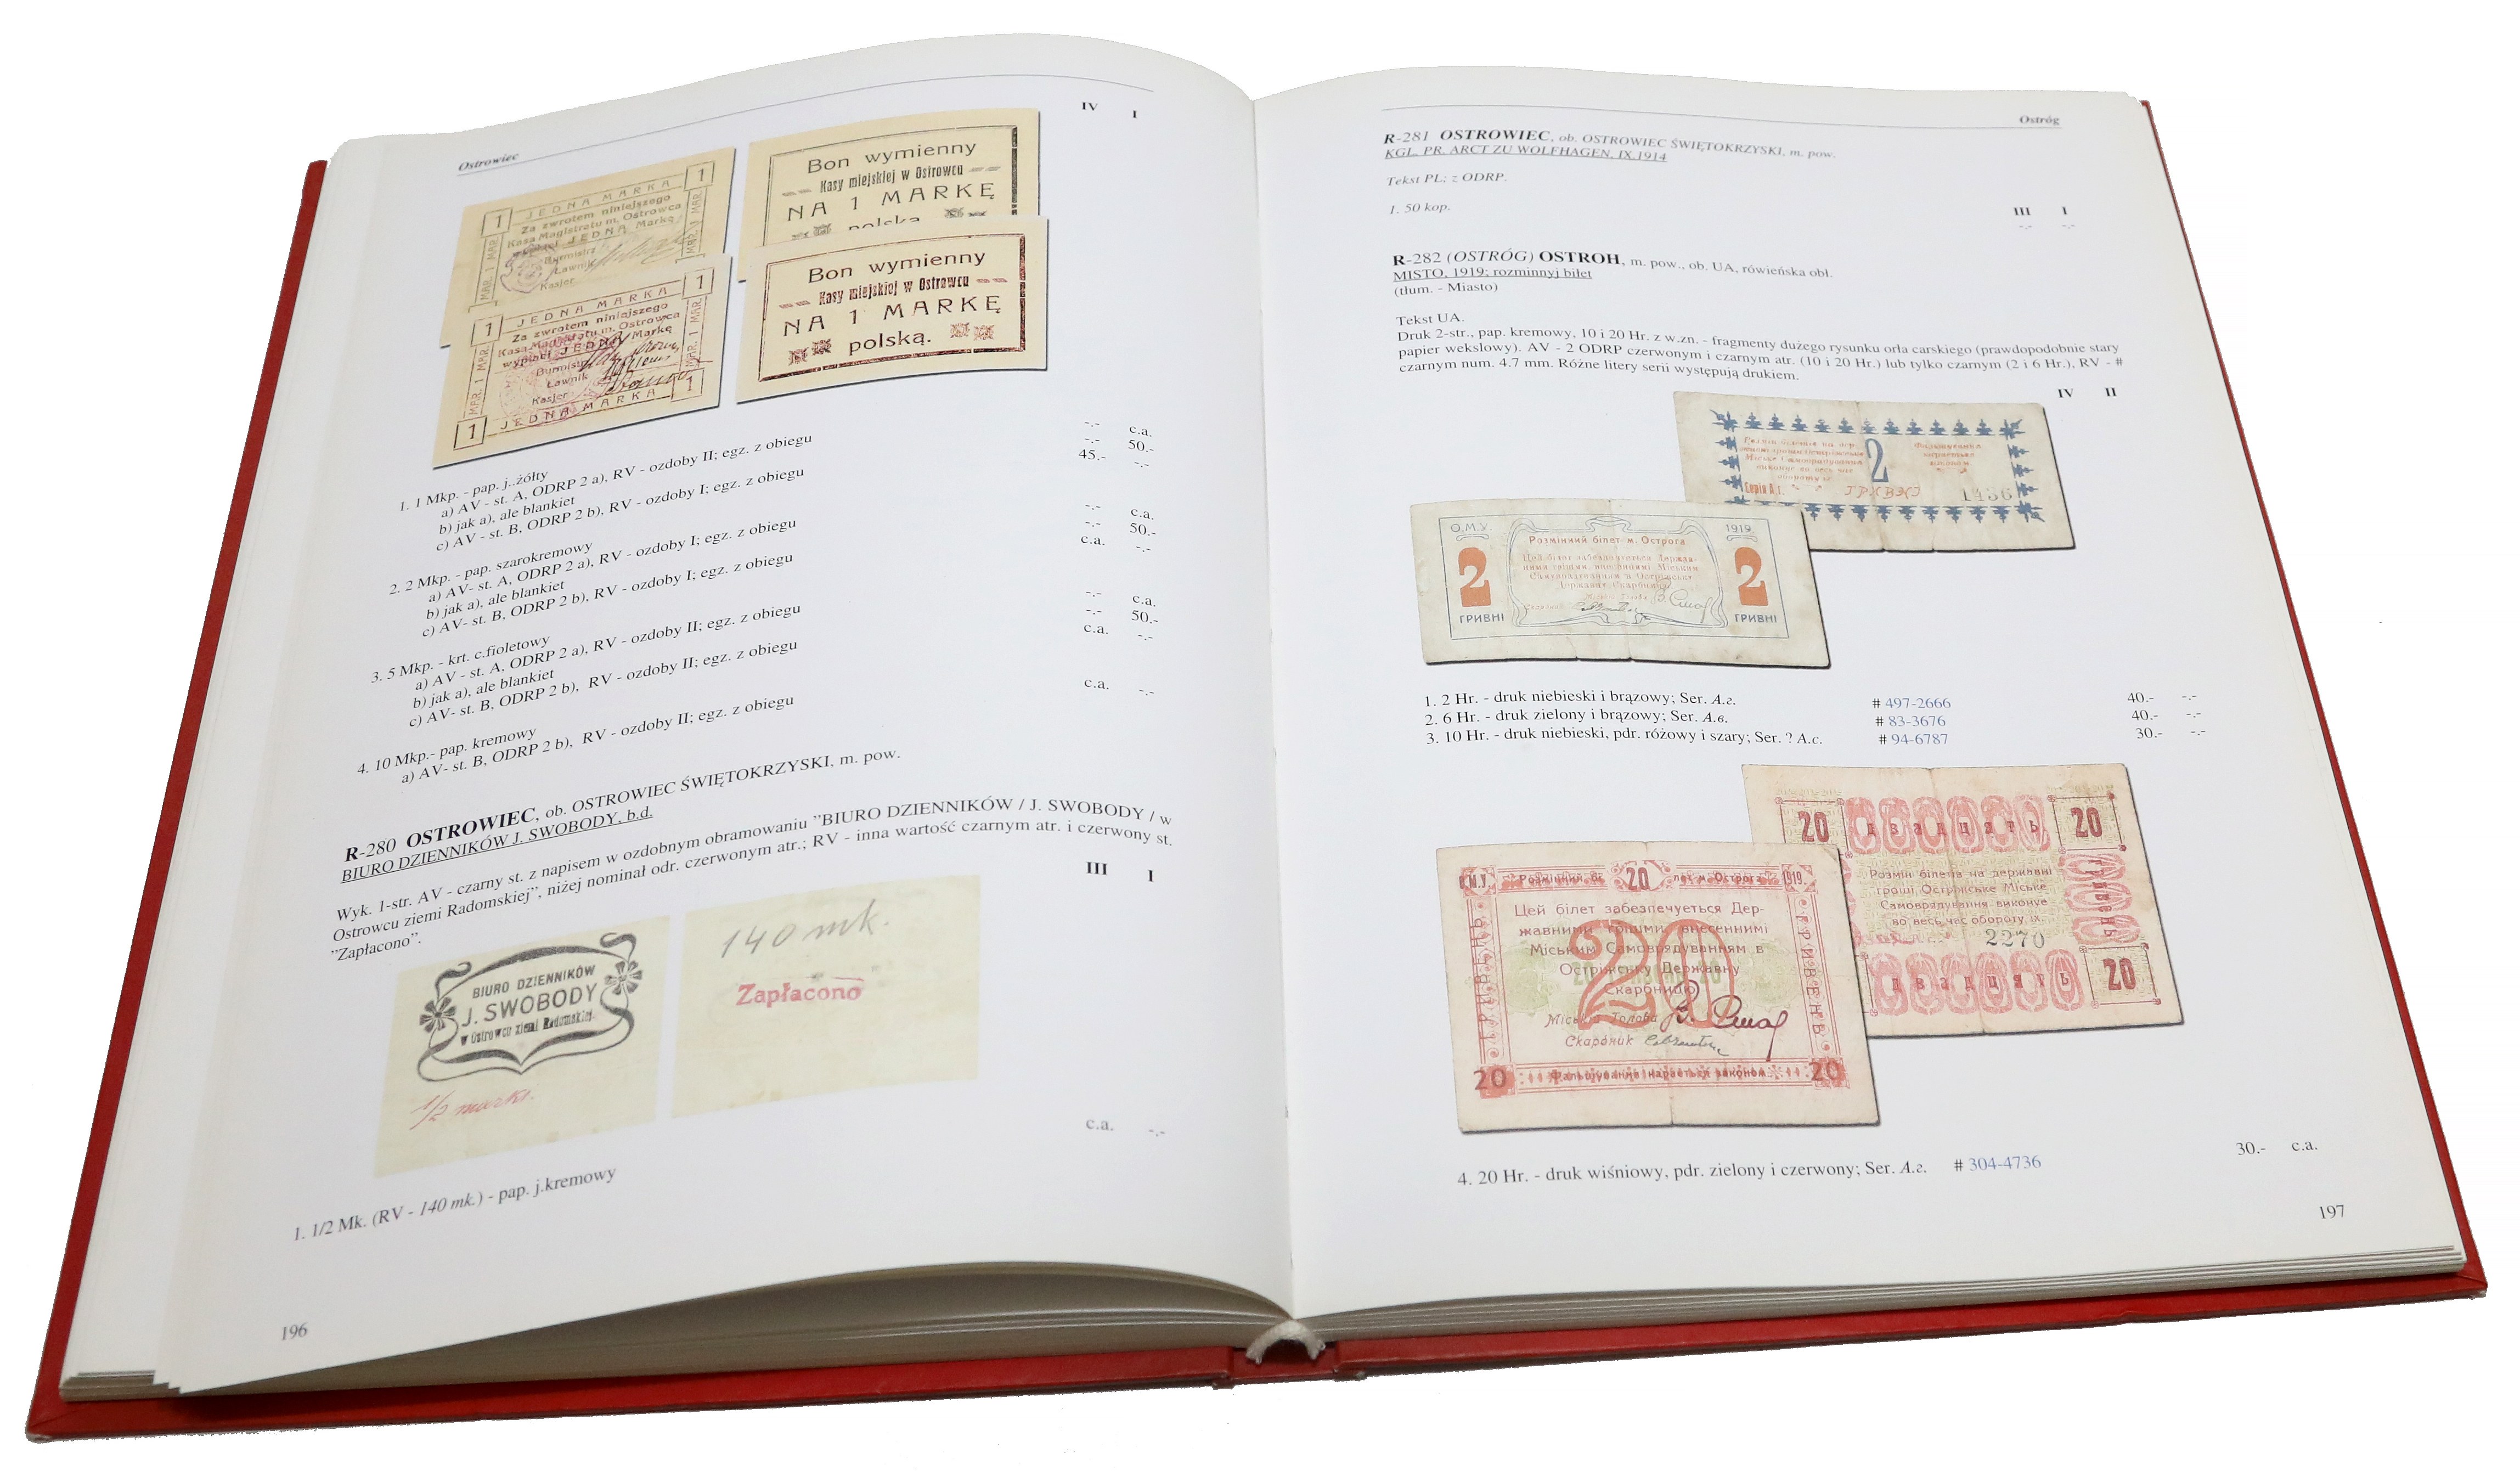 Ostrowiec
IV I
1 JEDNA MARKA 1
Za zwrotem niniejszego
Kasa Magistratu m. Ostrowca
JEDNA Markę
Burmistrz
Ławnik
Kasjer
MAR. 1 MAR.
MAR. 1 MAR.
Bon wymienny
Kasy miejskiej w Ostrowcu
NA 1 MARKĘ
polską
1 JEDNA MARKA 1
Za zwrotem niniejszego
Kasa Magistratu m. Ostrowca
wypłaci JEDNĄ Markę
Burmistrz
Ławnik
Kasjer
MAR. 1 MAR.
MAR. 1 MAR.
1 JEDNA MARKA 1
Bon wymienny
Kasy miejskiej w Ostrowcu
NA 1 MARKĘ
polską.
1. 1 Mkp. - pap. j..żółty
a) AV - st. A, ODRP 2 a), RV - ozdoby II; egz. z obiegu -.- c.a.
b) jak a), ale blankiet -.- 50.-
c) AV - st. B, ODRP 2 b), RV - ozdoby I; egz. z obiegu 45.- -.-
2. 2 Mkp. - pap. szarokremowy
a) AV- st. A, ODRP 2 a), RV - ozdoby I; egz. z obiegu -.- c.a.
b) jak a), ale blankiet -.- 50.-
c) AV- st. B, ODRP 2 b), RV - ozdoby I; egz. z obiegu c.a. -.-
3. 5 Mkp. - krt. c.fioletowy
a) AV - st. A, ODRP 2 a), RV - ozdoby II; egz. z obiegu -.- c.a.
b) jak a), ale blankiet -.- 50.-
c) AV- st. B, ODRP 2 b), RV - ozdoby II; egz. z obiegu c.a. -.-
4. 10 Mkp.- pap. kremowy
a) AV- st. B, ODRP 2 b), RV - ozdoby II; egz. z obiegu c.a. -.-
R-280 OSTROWIEC, ob. OSTROWIEC ŚWIĘTOKRZYSKI, m. pow.
BIURO DZIENNIKÓW J. SWOBODY, b.d.
Wyk. 1-str. AV - czarny st. z napisem w ozdobnym obramowaniu "BIURO DZIENNIKÓW / J. SWOBODY / w
Ostrowcu ziemi Radomskiej", niżej nominał odr. czerwonym atr.; RV - inna wartość czarnym atr. i czerwony st.
"Zapłacono".
III I
BIURO DZIENNIKÓW
J. SWOBODY
w Ostrowcu ziemi Radomskiej.
1/2 marki.
140 mk.
Zapłacono
1. 1/2 Mk. (RV - 140 mk.) - pap. j.kremowy c.a. -.-
196
Ostróg
R-281 OSTROWIEC, ob. OSTROWIEC ŚWIĘTOKRZYSKI, m. pow.
KGL. PR. ARCT ZU WOLFHAGEN, IX.1914
Tekst PL; z ODRP.
III I
1. 50 kop. -.- -.-
R-282 (OSTRÓG) OSTROH, m. pow., ob. UA, rówieńska obł.
MISTO, 1919; rozminnyj biłet
(tłum. - Miasto)
Tekst UA.
Druk 2-str., pap. kremowy, 10 i 20 Hr. z w.zn. - fragmenty dużego rysunku orła carskiego (prawdopodobnie stary
papier wekslowy). AV - 2 ODRP czerwonym i czarnym atr. (10 i 20 Hr.) lub tylko czarnym (2 i 6 Hr.), RV - #
czarnym num. 4.7 mm. Różne litery serii występują drukiem.
IV II
2
Серія А.г.
ГРИВНІ
1436
О.М.У. 1919
Розмінний білет м. Острога
2 2
ГРИВНІ ГРИВНІ
1. 2 Hr. - druk niebieski i brązowy; Ser. А.г. # 497-2666 40.- -.-
2. 6 Hr. - druk zielony i brązowy; Ser. А.в. # 83-3676 40.- -.-
3. 10 Hr. - druk niebieski, pdr. różowy i szary; Ser. ? А.с. # 94-6787 30.- -.-
20 двадцять 20
Розмін білетів на державні
гроші Острожське Міське
Самоврядування виконує
во весь час обороту їх.
2270
гривень
двадцять 20
О.М.У. Розмінний білет м. Острога 1919.
20
Цей білет забезпечується Дер-
жавними грішми, внесенними
Міським Самоврядуванням в
Острізьку Державну
Скарбницю
20
Міський Голова
Скарбник
ГРИВЕНЬ
ГРИВЕНЬ
20 Фальшування карається законом. 20
4. 20 Hr. - druk wiśniowy, pdr. zielony i czerwony; Ser. А.г. # 304-4736 30.- c.a.
197